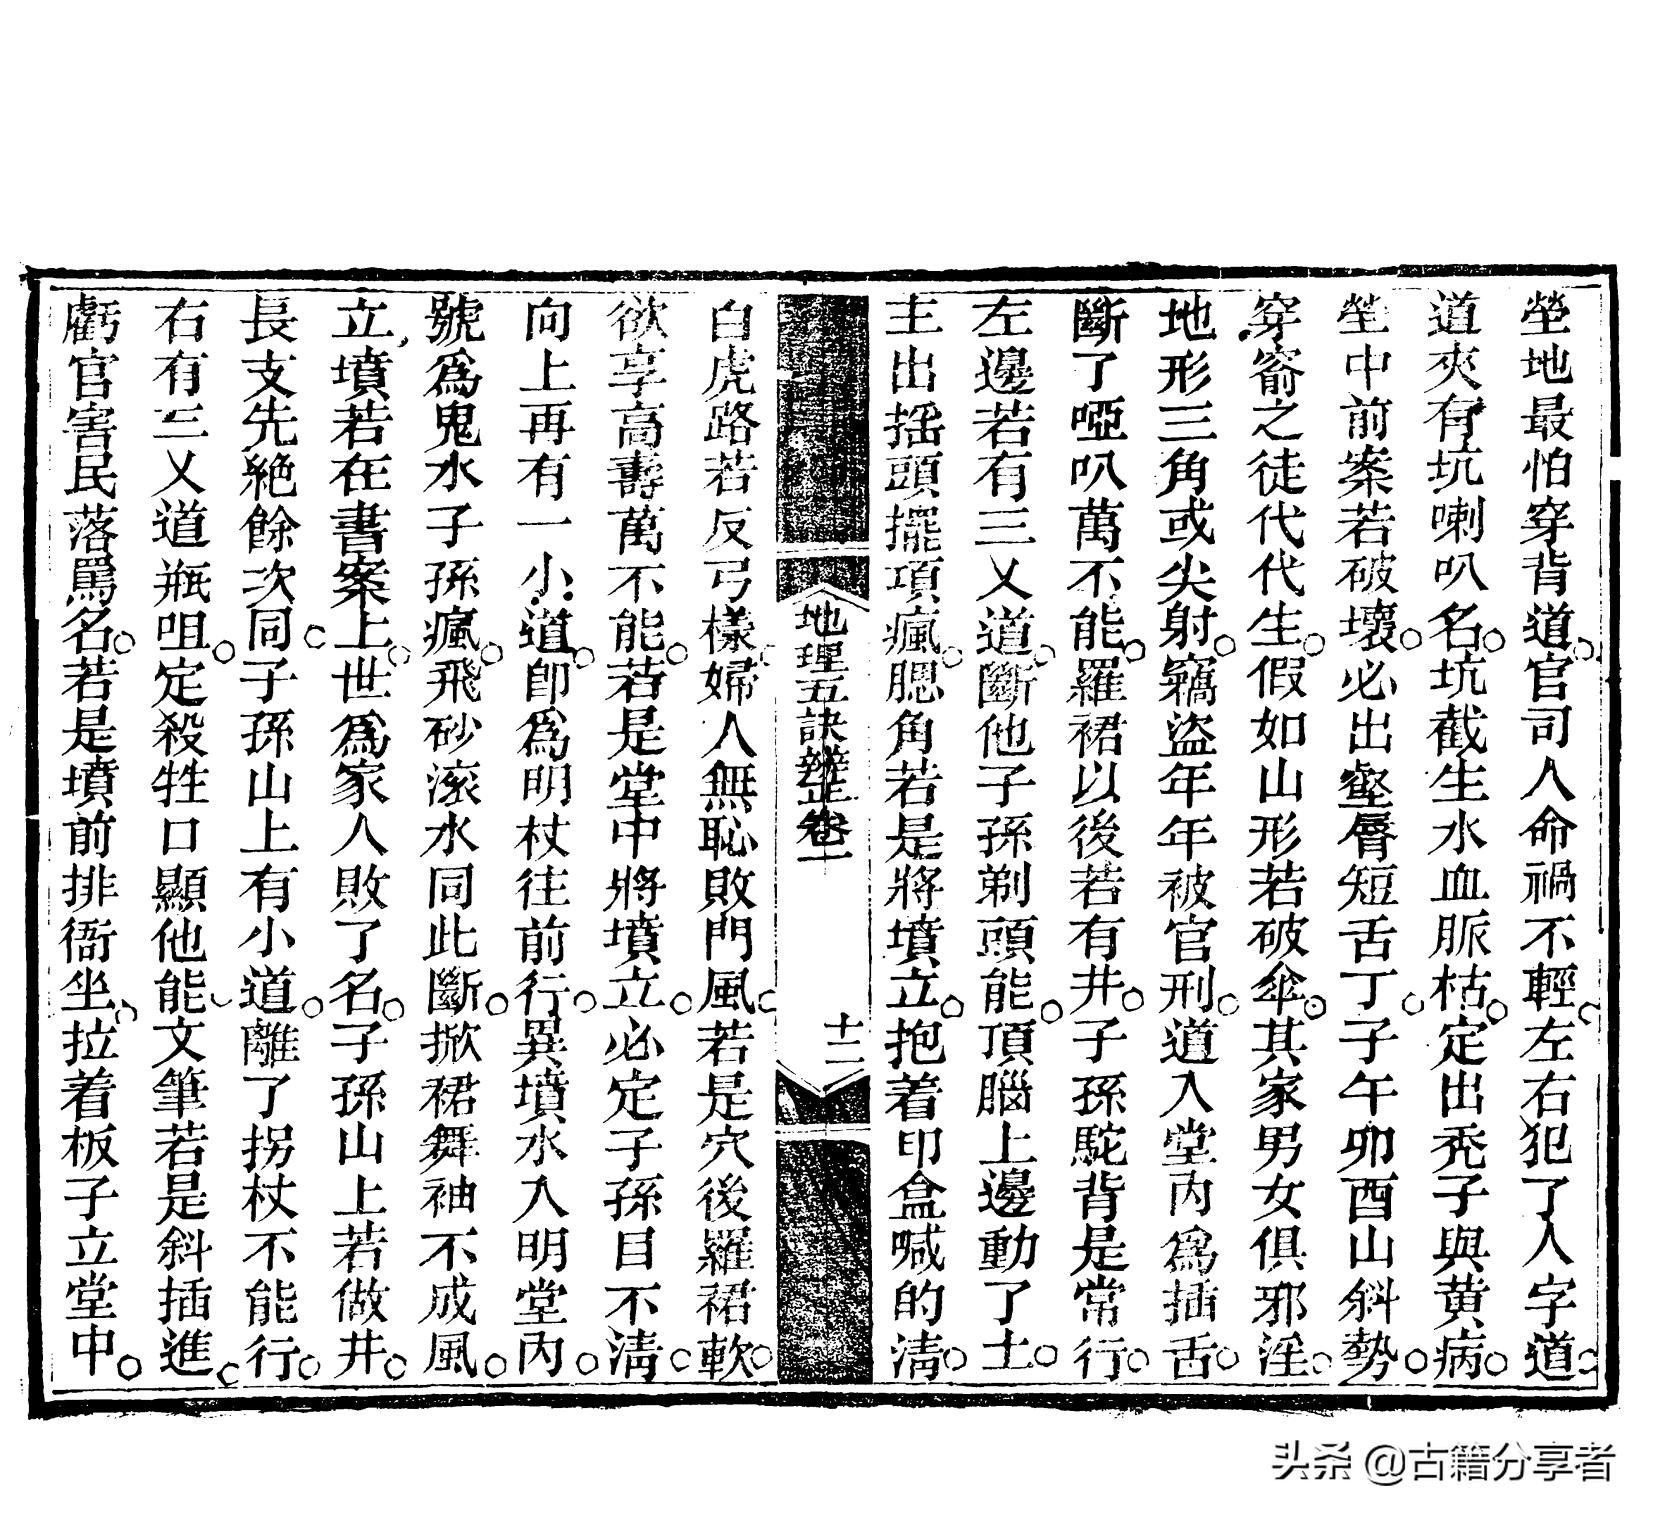 塋地最怕穿背道官司人命禍不輕左右犯了人字道
道夾有坑喇叭名坑截生水血脈枯定出禿子與黄病
塋中前案若破壞必出壑唇短舌丁子午卯酉山斜勢
穿窬之徒代代生假如山形若破傘其家男女俱邪淫
地形三角或尖射竊盜年年被官刑道入堂内為插舌
斷了啞叭萬不能羅裙以後若有井子孫駝背是常行
左邊若有三乂道斷他子孫剃頭能頂腦上邊動了土
主出搖頭擺項瘋腮角若是將墳立抱着印盒喊的清
地理五訣辨歪卷一
十二
白虎路若反弓樣婦人無恥敗門風若是穴後羅裙軟
欲享高壽萬不能若是堂中將墳立必定子孫目不清
向上再有一小道即為明杖往前行異墳水入明堂内
號為鬼水子孫瘋飛砂滚水同此斷掀裙舞袖不成風
立墳若在書案上世為家人敗了名子孫山上若做井
長支先絶餘次同子孫山上有小道離了拐杖不能行
右有三乂道瓶咀定殺牲口顯他能文筆若是斜插進
虧官害民落罵名若是墳前排衙坐拉着板子立堂中
头条 @古籍分享者